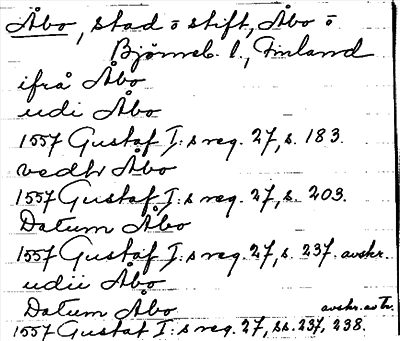 Åbo, stad o stift, Åbo o
Björneb. l., Finland
ifrå Åbo
udi Åbo
1557 Gustaf I:s reg. 27, s. 183.
vedh Åbo
1557 Gustaf I:s reg. 27, s. 203.
Datum Åbo
1557 Gustaf I:s reg. 27, s. 237. avskr.
udii Åbo
Datum Åbo avskr. av tr.
1557 Gustaf I:s reg. 27, ss. 237, 238.